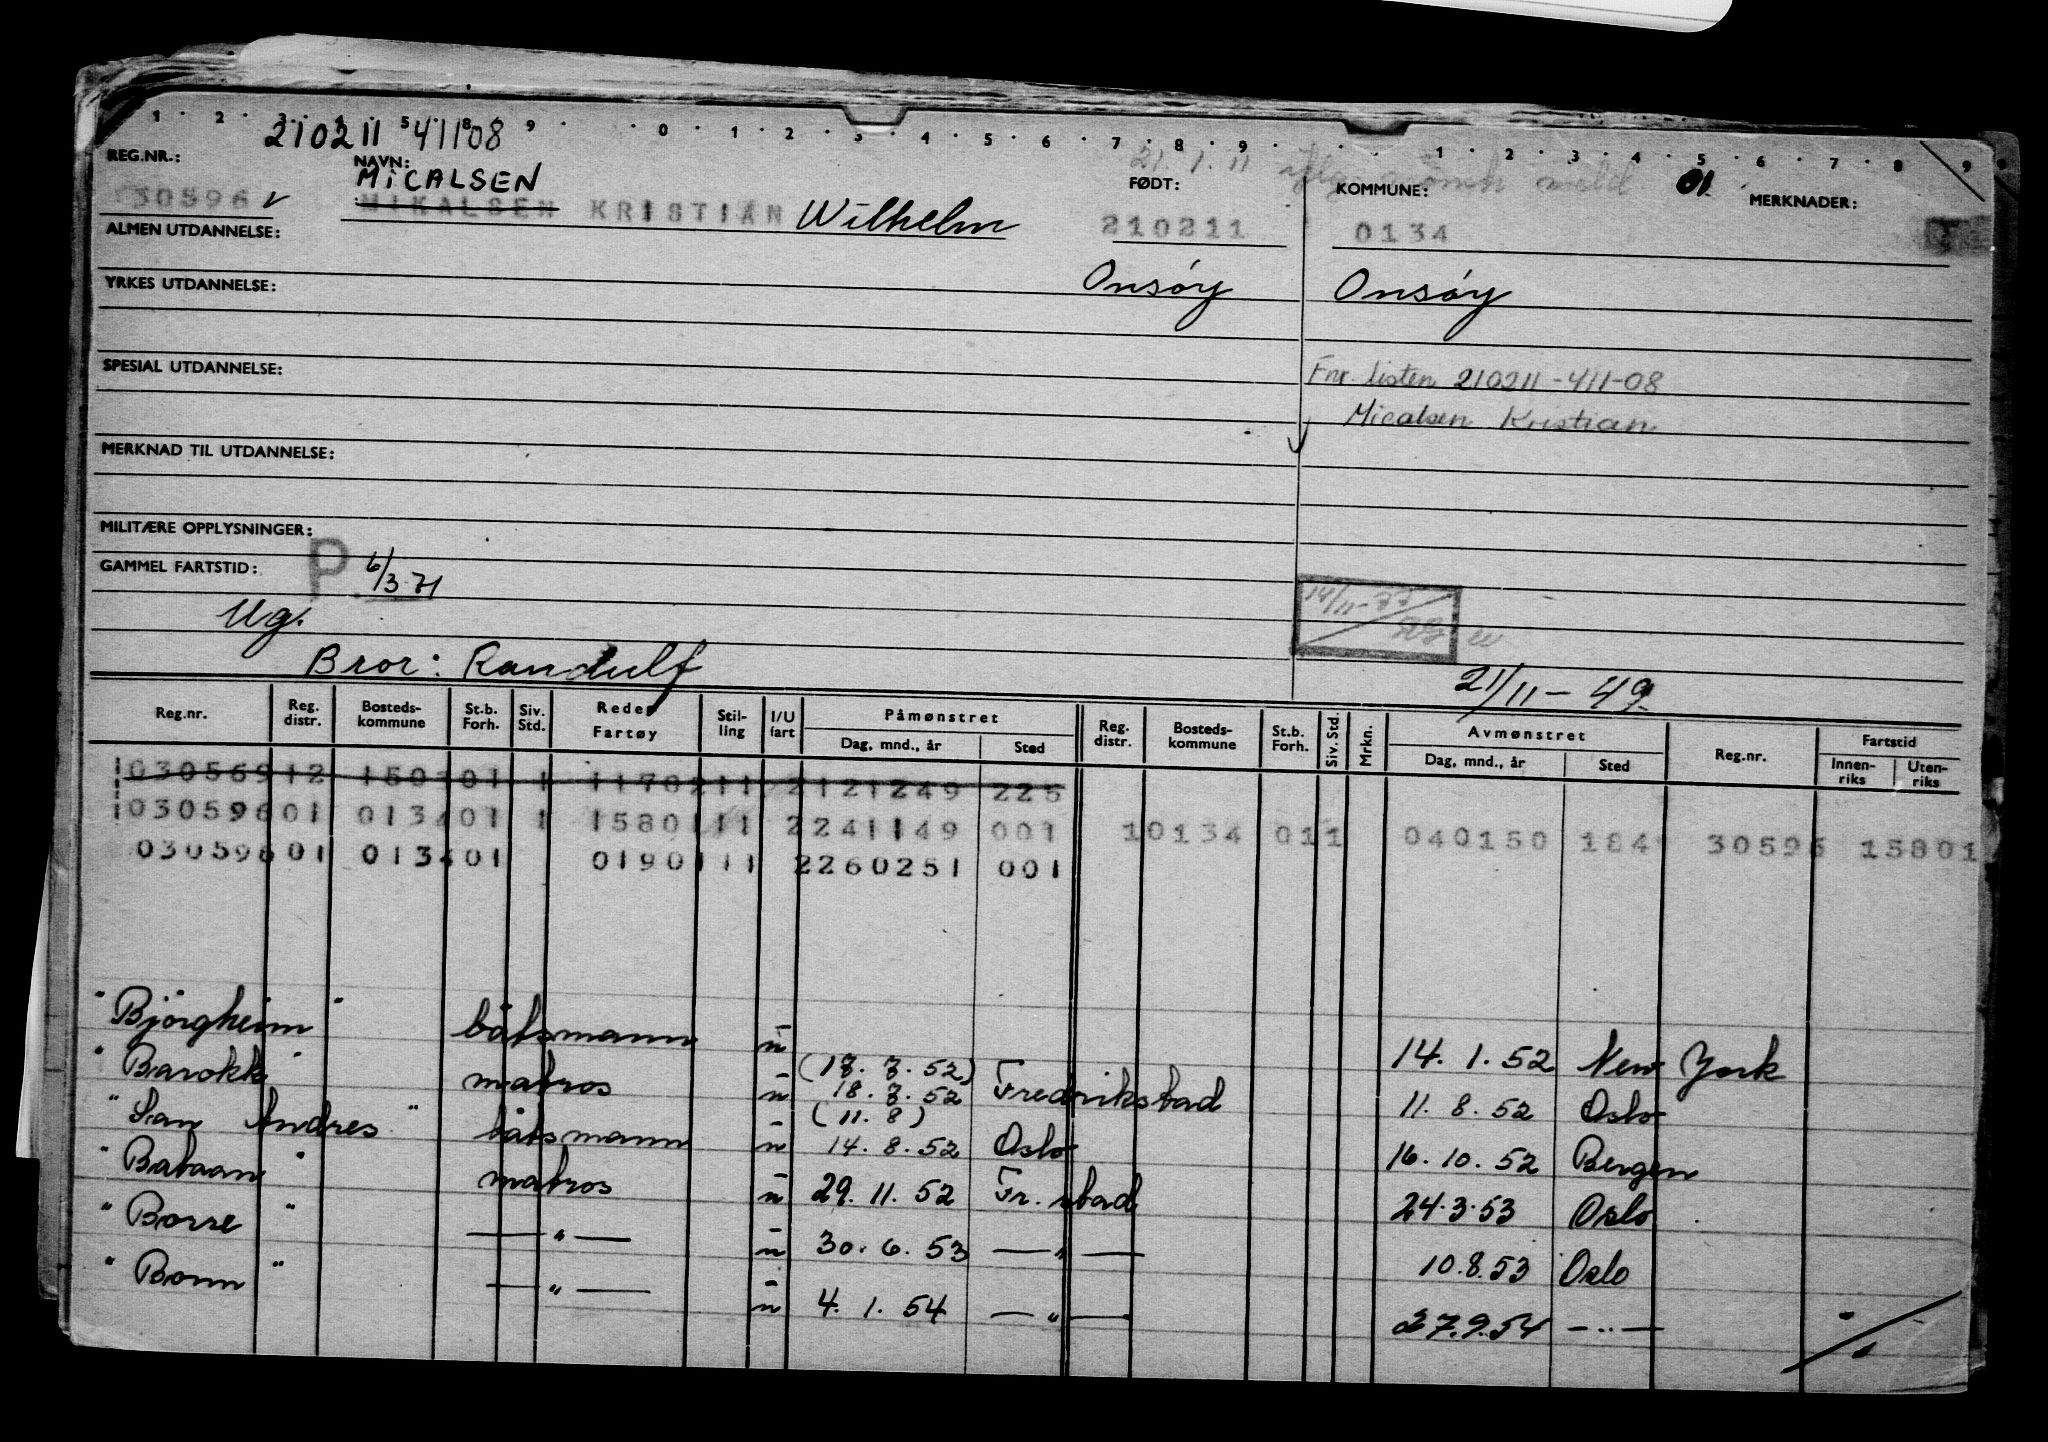 1 2 3 5 8 9 0 1 2 3 4 5 6 7 8 9 1 2 3 4 5 6 7 8 9
210211 41108
REG.NR.: NAVN: FØDT: 21.1.11 KOMMUNE: 01 MERKNADER:
MICALSEN
30596 MIKALSEN KRISTIAN Wilhelm 210211 0134
ALMEN UTDANNELSE:
YRKES UTDANNELSE: Onsøy Onsøy
SPESIAL UTDANNELSE: Fnr. listen 210211-411-08
Micalsen Kristian
MERKNAD TIL UTDANNELSE:
MILITÆRE OPPLYSNINGER:
GAMMEL FARTSTID: P 6/3-71
14/11-77
Ug.
Bror: Randulf 21/11-49
Reg.nr. Reg. distr. Bosteds-kommune St.b. Forh. Siv. Std. Rederi Fartøy Stil-ling I/U fart Påmønstret Dag, mnd., år Sted Reg. distr. Bosteds-kommune St.b. Forh. Siv. Std. Mrkn. Avmønstret Dag, mnd., år Sted Reg.nr. Fartstid Innen-riks Uten-riks
1030569 12 150101 1 1170211 2121249 225
1030596 01 013401 1 1580111 2241149 001 10134 011 040150 184 30596 15801
030596 01 013401 0190111 2260251 001
"Bjørgheim" båtsmann u 14.1.52 New York
"Barokk" matros u (17.7.52) 18.7.52 Fredrikstad 11.8.52 Oslo
"San Andres" båtsmann u (11.8) 14.8.52 Oslo 16.10.52 Bergen
"Bataan" matros u 29.11.52 Fr.stad 24.3.53 Oslo
"Borre" —"— u 30.6.53 —"— 10.8.53 Oslo
"Bonn" —"— u 4.1.54 —"— 27.9.54 —"—